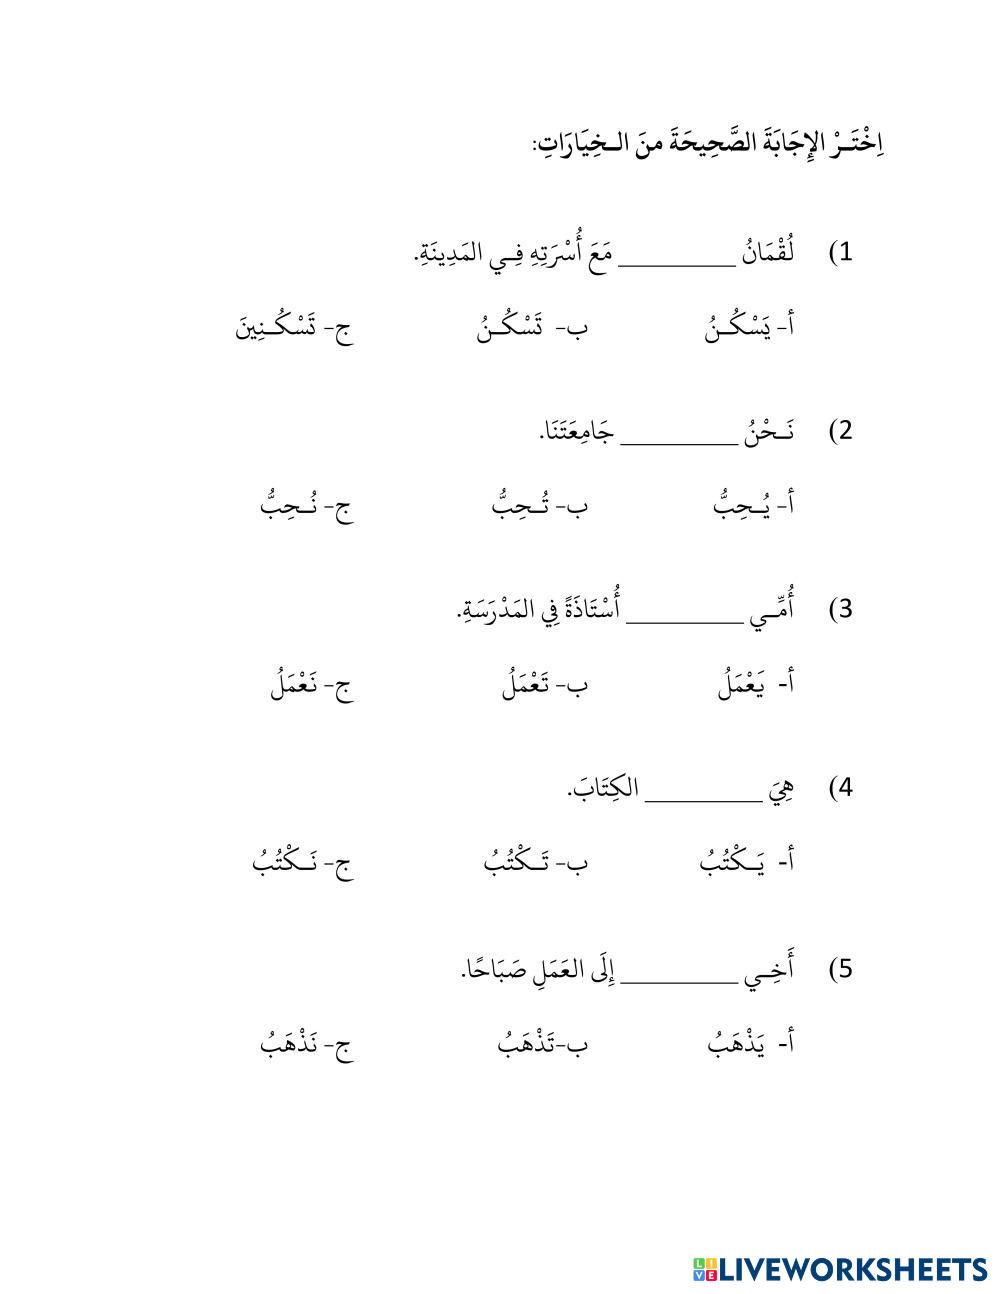 اِخْتَـرْ الإِجَابَةَ الصَّحِيحَةَ منَ الـخِيَارَاتِ:
1) لُقْمَانُ _________ مَعَ أُسْرَتِهِ فِـي المَدِينَةِ.
أ- يَسْكُـنُ ب- تَسْكُـنُ ج- تَسْكُـنِينَ
2) نَـحْنُ _________ جَامِعَتَنَا.
أ- يُـحِبُّ ب- تُـحِبُّ ج- نُـحِبُّ
3) أُمِّـي _________ أُسْتَاذَةً فِي المَدْرَسَةِ.
أ- يَعْمَلُ ب- تَعْمَلُ ج- نَعْمَلُ
4) هِيَ _________ الكِتَابَ.
أ- يَـكْتُبُ ب- تَـكْتُبُ ج- نَـكْتُبُ
5) أَخِـي _________ إِلَى العَمَلِ صَبَاحًا.
أ- يَذْهَبُ ب-تَذْهَبُ ج- نَذْهَبُ
LIVE LIVEWORKSHEETS